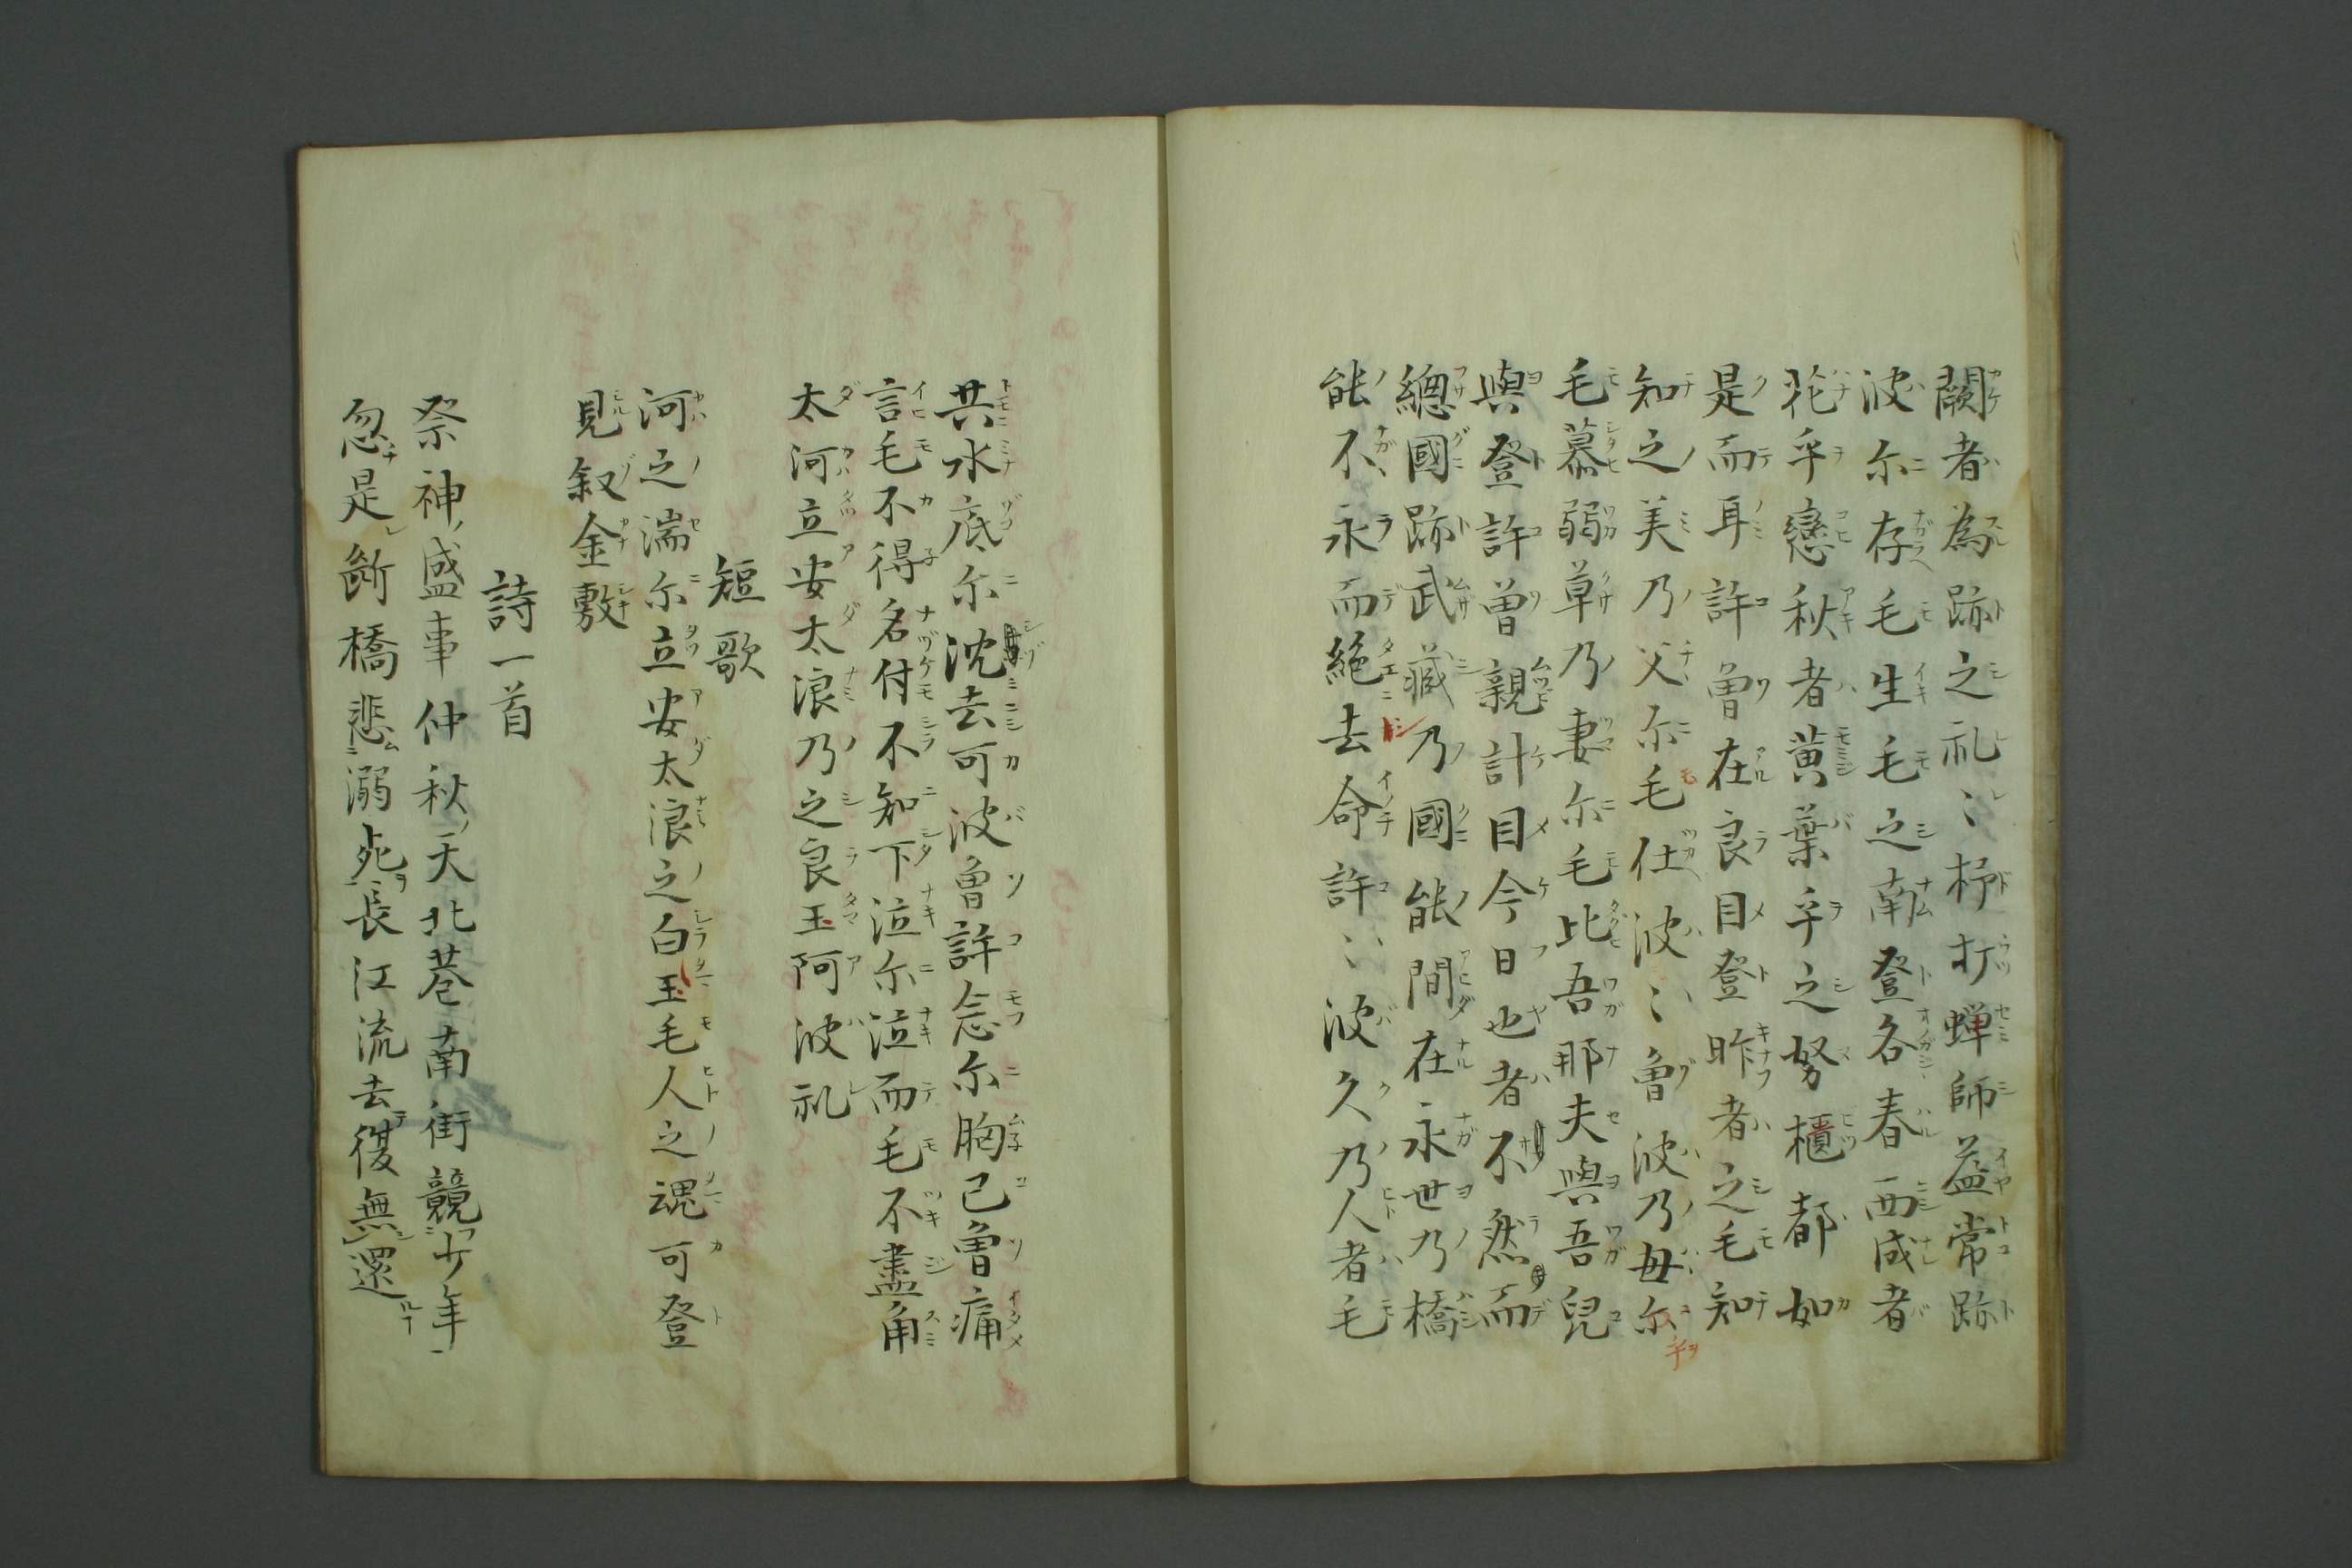 闕者為跡之礼〻杼打蝉師益常跡
波尓存毛生毛之南登各春西成者
花乎戀秋者黄葉乎之努櫃都如
是而耳許曽在良目登昨者之毛知
知之美乃父尓毛仕波〻曽波乃毋尓
毛慕弱草乃妻尓毛比吾那夫與吾兒
與登許曽親計目今日也者不然而
總國跡武藏乃國能間在永世乃橋
能不永而絶去命許〻波久乃人者毛
共水底尓沈去可波曽許念尓胸己曽痛
言毛不得名付不知下泣尓泣而毛不盡角
太河立安太浪乃之良玉阿波礼
短歌
河之湍尓立安太浪之白玉毛人之魂可登
見叙金敷
詩一首
祭神盛事仲秋天北巷南街競少年
忽是斷橋悲溺死長江流去復無還